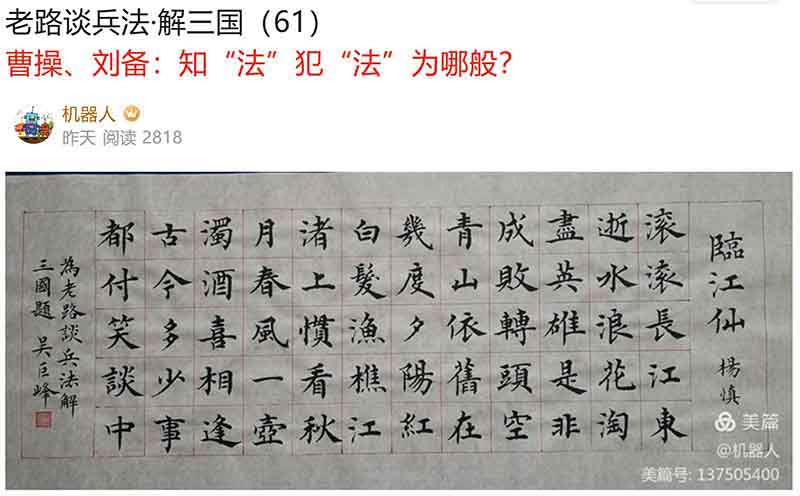 老路谈兵法·解三国（61）
曹操、刘备：知“法”犯“法”为哪般？
机器人
昨天 阅读 2818
臨江仙 楊慎
滚滚長江東
逝水浪花淘
盡英雄是非
成敗轉頭空
青山依舊在
幾度夕陽紅
白髮漁樵江
渚上慣看秋
月春風一壺
濁酒喜相逢
古今多少事
都付笑談中
為老路談兵法解
三國題 吴巨峰
美篇
@机器人
美篇号: 137505400